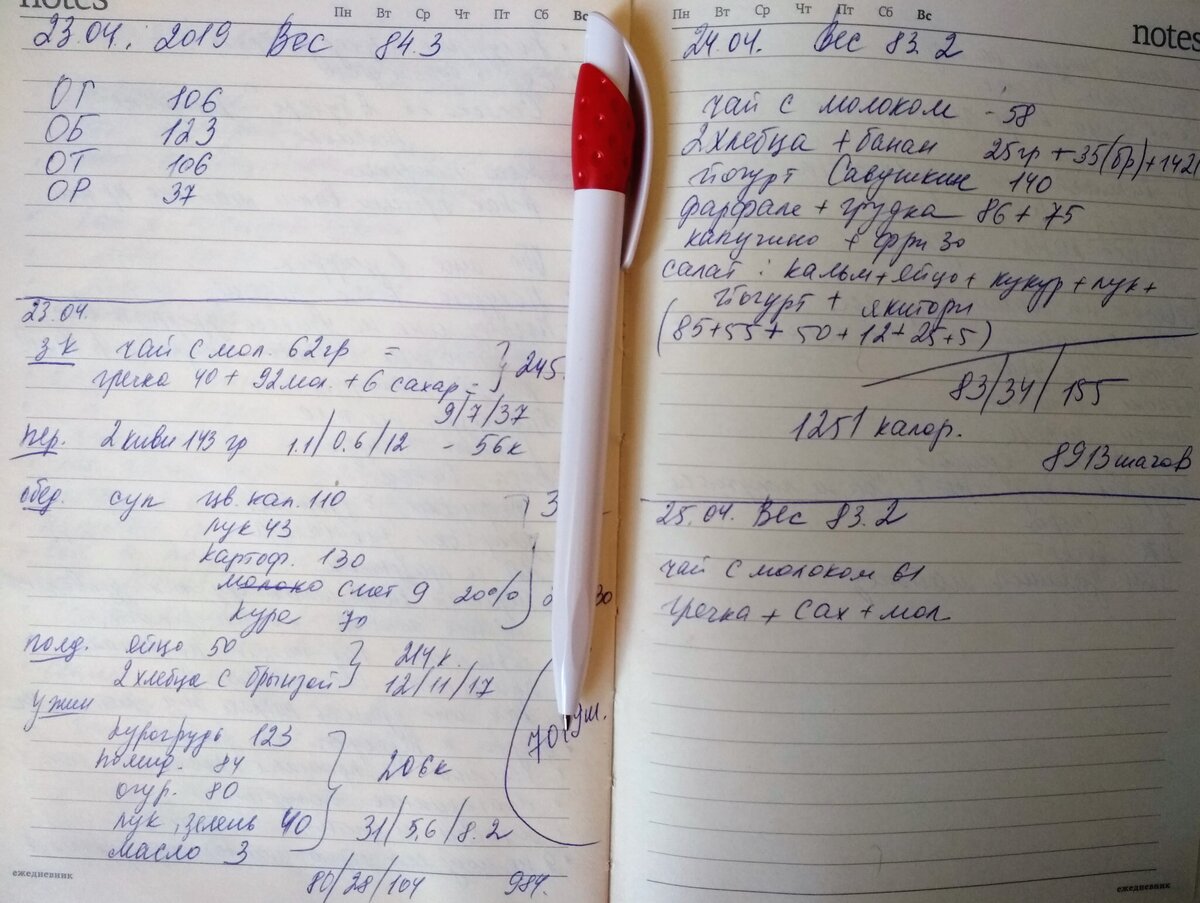 notes
Пн Вт Ср Чт Пт Сб Вс
23.04. 2019 Вес 84.3
ОГ 106
ОБ 123
ОТ 106
ОР 37
23.04.
з-к чай с мол. 62гр =
гречка 40 + 92мол. + 6 сахар =
245
9/7/37
пер. 2 киви 143 гр 1.1/0.6/12 - 56к
обед. суп цв. кап. 110
лук 43
картоф. 130
молоко смет 9 20%
кура 70
полд. яйцо 50
214к.
2 хлебца с брынзой 12/11/17
ужин
курогрудь 123
помид. 84
206к
огур. 80
лук, зелень 40 31/5,6/8.2
масло 3
80/28/104 984.
ежедневник
Пн Вт Ср Чт Пт Сб Вс
notes
24.04. Вес 83.2
чай с молоком - 58
2 хлебца + банан 25гр + 35(бр) + 142
йогурт Савушкин 140
фарфале + грудка 86 + 75
капучино + фри 30
салат : кальм + яйцо + кукур + лук +
йогурт + якитори
(85+55+50+12+25+5)
83/34/155
1251 калор.
8913 шагов
25.04. Вес 83.2
чай с молоком 61
гречка + сах + мол
ежедневник